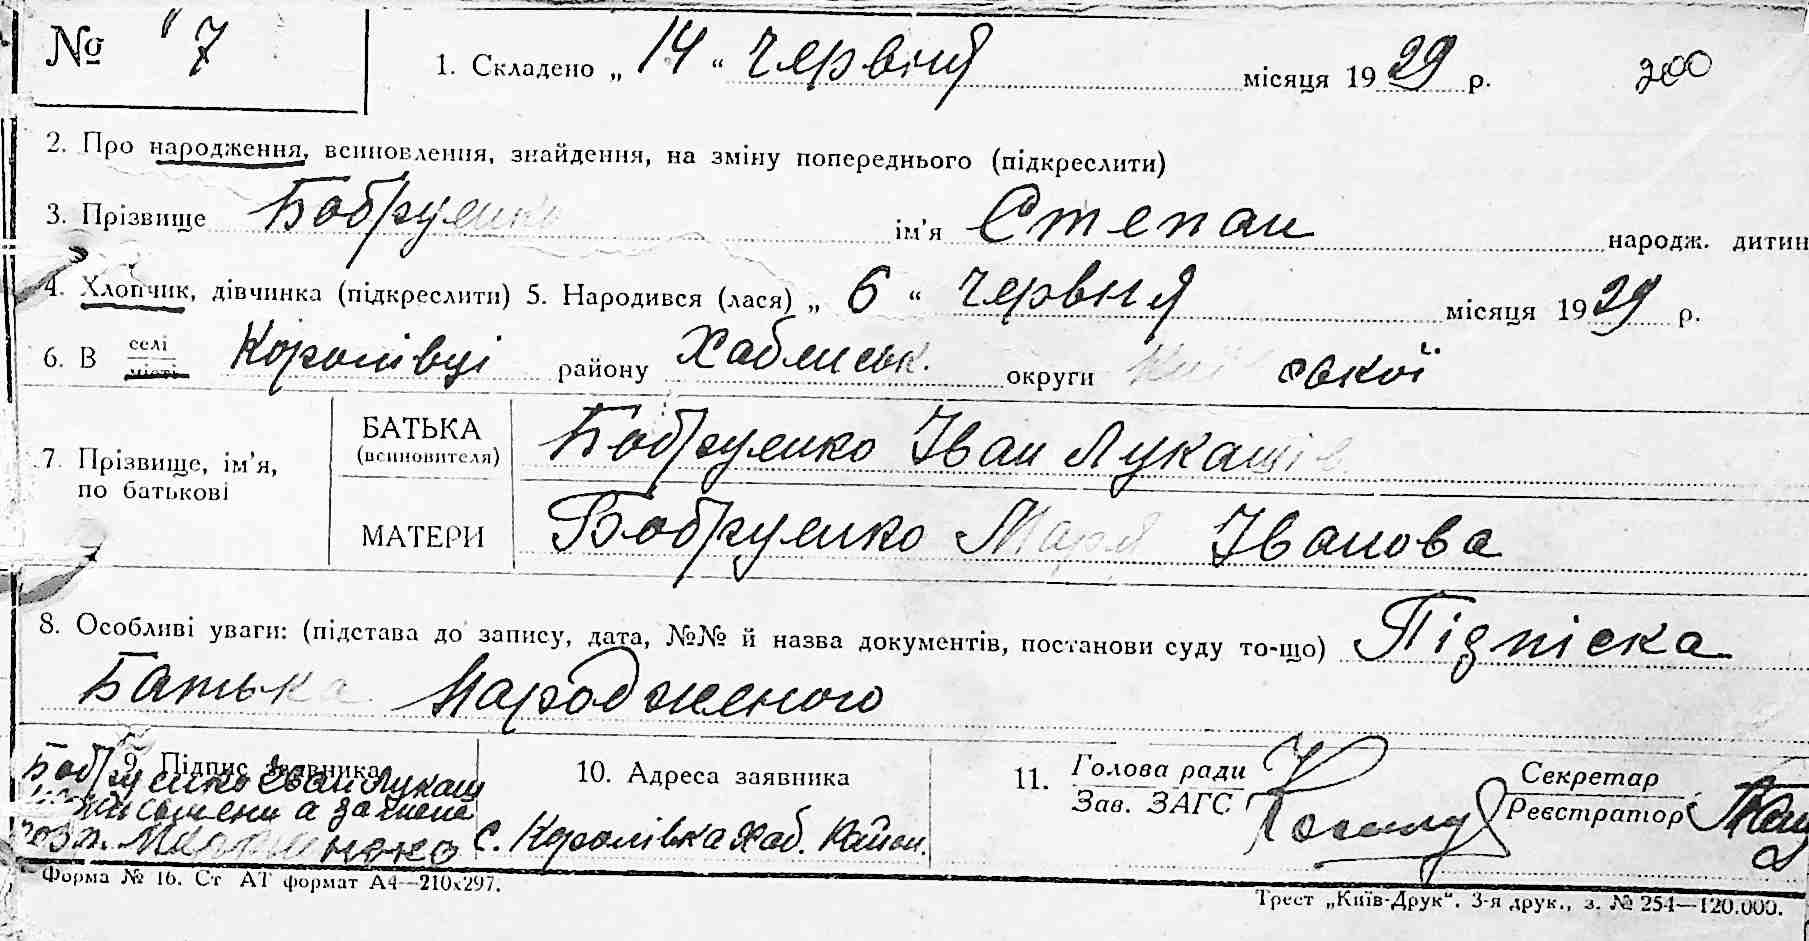 № 7
1. Складено „ 14 “ червня місяця 1929 р. 200
2. Про народження, всиновлення, знайдення, на зміну попереднього (підкреслити)
3. Прізвище Бобруенко ім’я Степан народж. дитин
4. Хлопчик, дівчинка (підкреслити) 5. Народився (лася) „ 6 “ червня місяця 1929 р.
6. В селі місті Королівці району Хабенськ. округи Київської
7. Прізвище, ім’я, по батькові
БАТЬКА (всиновителя) Бобруенко Іван Лукашів
МАТЕРИ Бобруенко Марія Іванова
8. Особливі уваги: (підстава до запису, дата, №№ й назва документів, постанови суду то-що) Підпіска
Батька Народженого
9. Підпис заявника
Бобруенко Іван Лукаш
а за мене
розп.
10. Адреса заявника
с. Королівка Хаб. Район.
11. Голова ради
Зав. ЗАГС
Секретар
Реєстратор
Форма № 16. Ст АТ формат А4—210х297.
Трест „Київ-Друк“. 3-я друк., з. № 254—120.000.